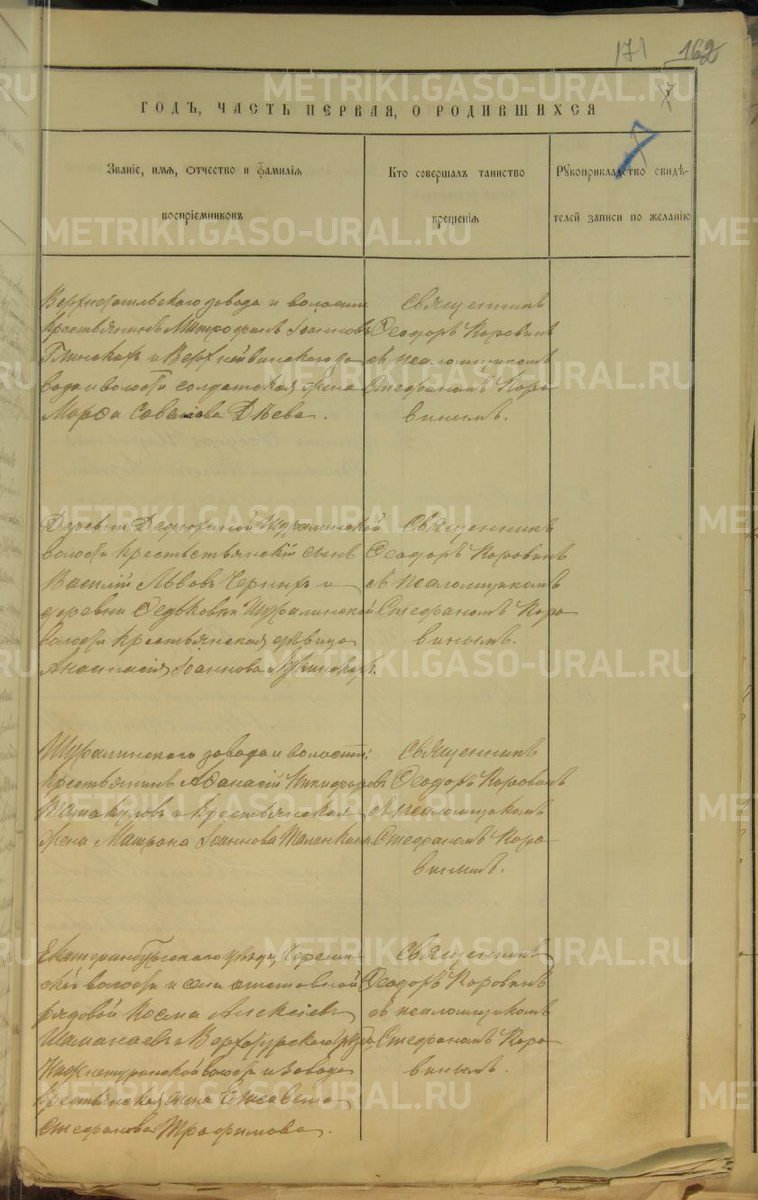 171 162
ГОДЪ, ЧАСТЬ ПЕРВАЯ, О РОДИВШИХСЯ
Званіе, имя, отчество и фамилія
воспріемниковъ
Кто совершалъ таинство
крещенія
Рукоприкладство свидѣ-
телей записи по желанію
завода и волости
крестьянинъ Митрофанъ Іоанновъ
Глинскихъ и Верхнейвинскаго за
вода и волости солдатская жена
Марѳа Саватова Дѣева.
Священникъ
Ѳеодоръ Коровинъ
съ псаломщикомъ
Стефаномъ Коро
винымъ.
Деревни Шуралинской
волости крестьянскій сынъ
Василій Львовъ Черныхъ и
деревни Ѳедьковки Шуралинской
волости крестьянская дѣвица
Анастасія Іоаннова
Священникъ
Ѳеодоръ Коровинъ
съ псаломщикомъ
Стефаномъ Коро
винымъ.
Шуралинскаго завода и волости:
крестьянинъ Аѳанасій Никифоровъ
и крестьянская
жена Матрона Іоаннова
Священникъ
Ѳеодоръ Коровинъ
съ псаломщикомъ
Стефаномъ Коро
винымъ.
Екатеринбургскаго уѣзда,
волости и села отставной
рядовой Косма Алексіевъ
Шаманаевъ и Верхотурскаго уѣзда,
Нижнетуринской волости и завода
крестьянская жена Елисавета
Стефанова Трофимова.
Священникъ
Ѳеодоръ Коровинъ
съ псаломщикомъ
Стефаномъ Коро
винымъ.
METRIKI.GASO-URAL.RU